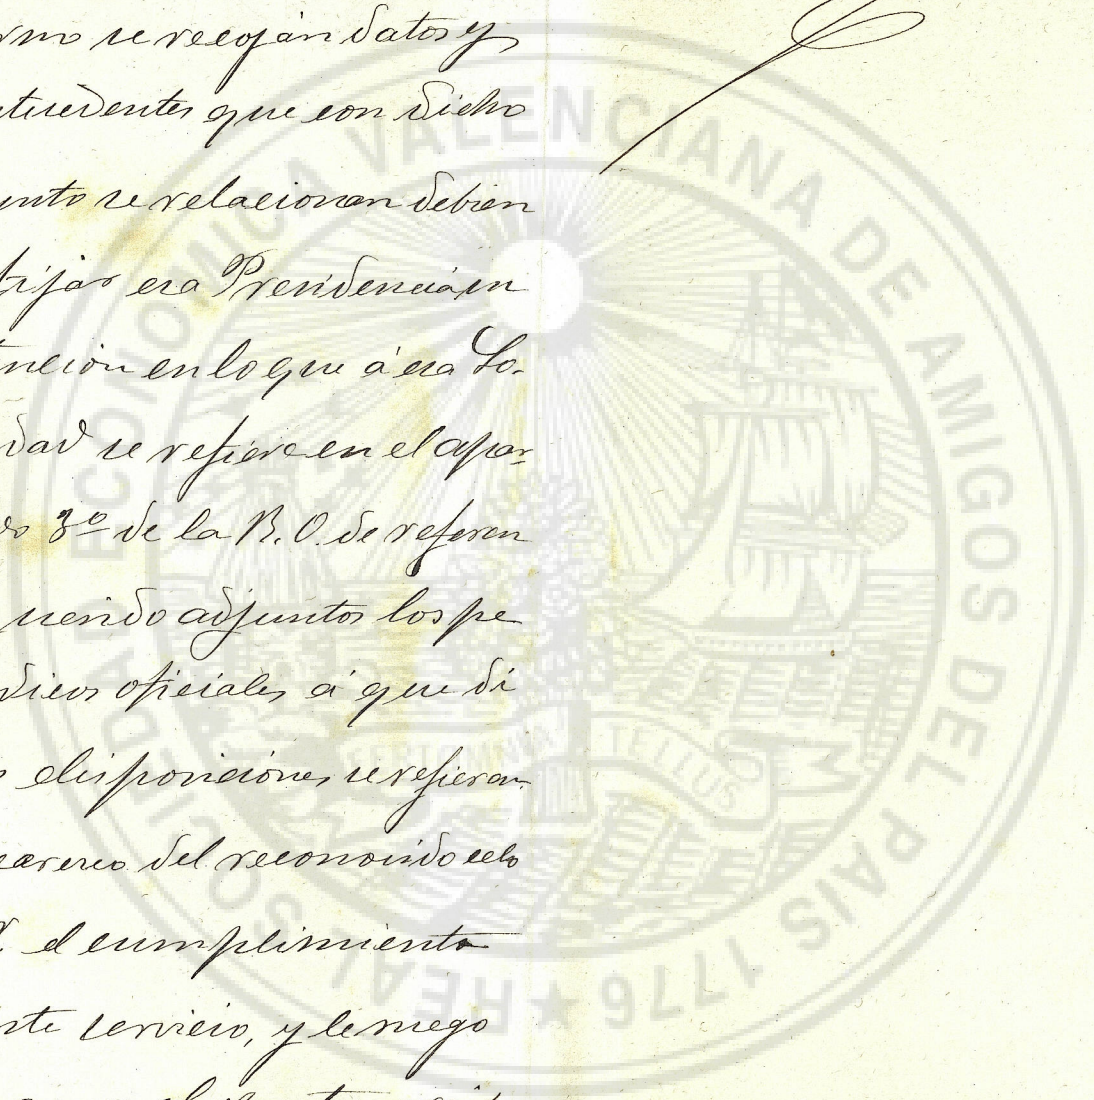 rmo se recojan datos y
tecedentes que con dicho
unto se relacionan debien
fijar esa Presidencia su
tención en lo que á esa So-
dad se refiere en el apar-
do 3º de la R. O. de referen
uendo adjuntos los pe
dicos oficiales á que di
s disposiciones se refieren.
del reconocido celo
el cumplimiento
ste servicio, y le ruego
REAL SOCIEDAD ECONOMICA VALENCIANA DE AMIGOS DEL PAIS 1776
TELLUS